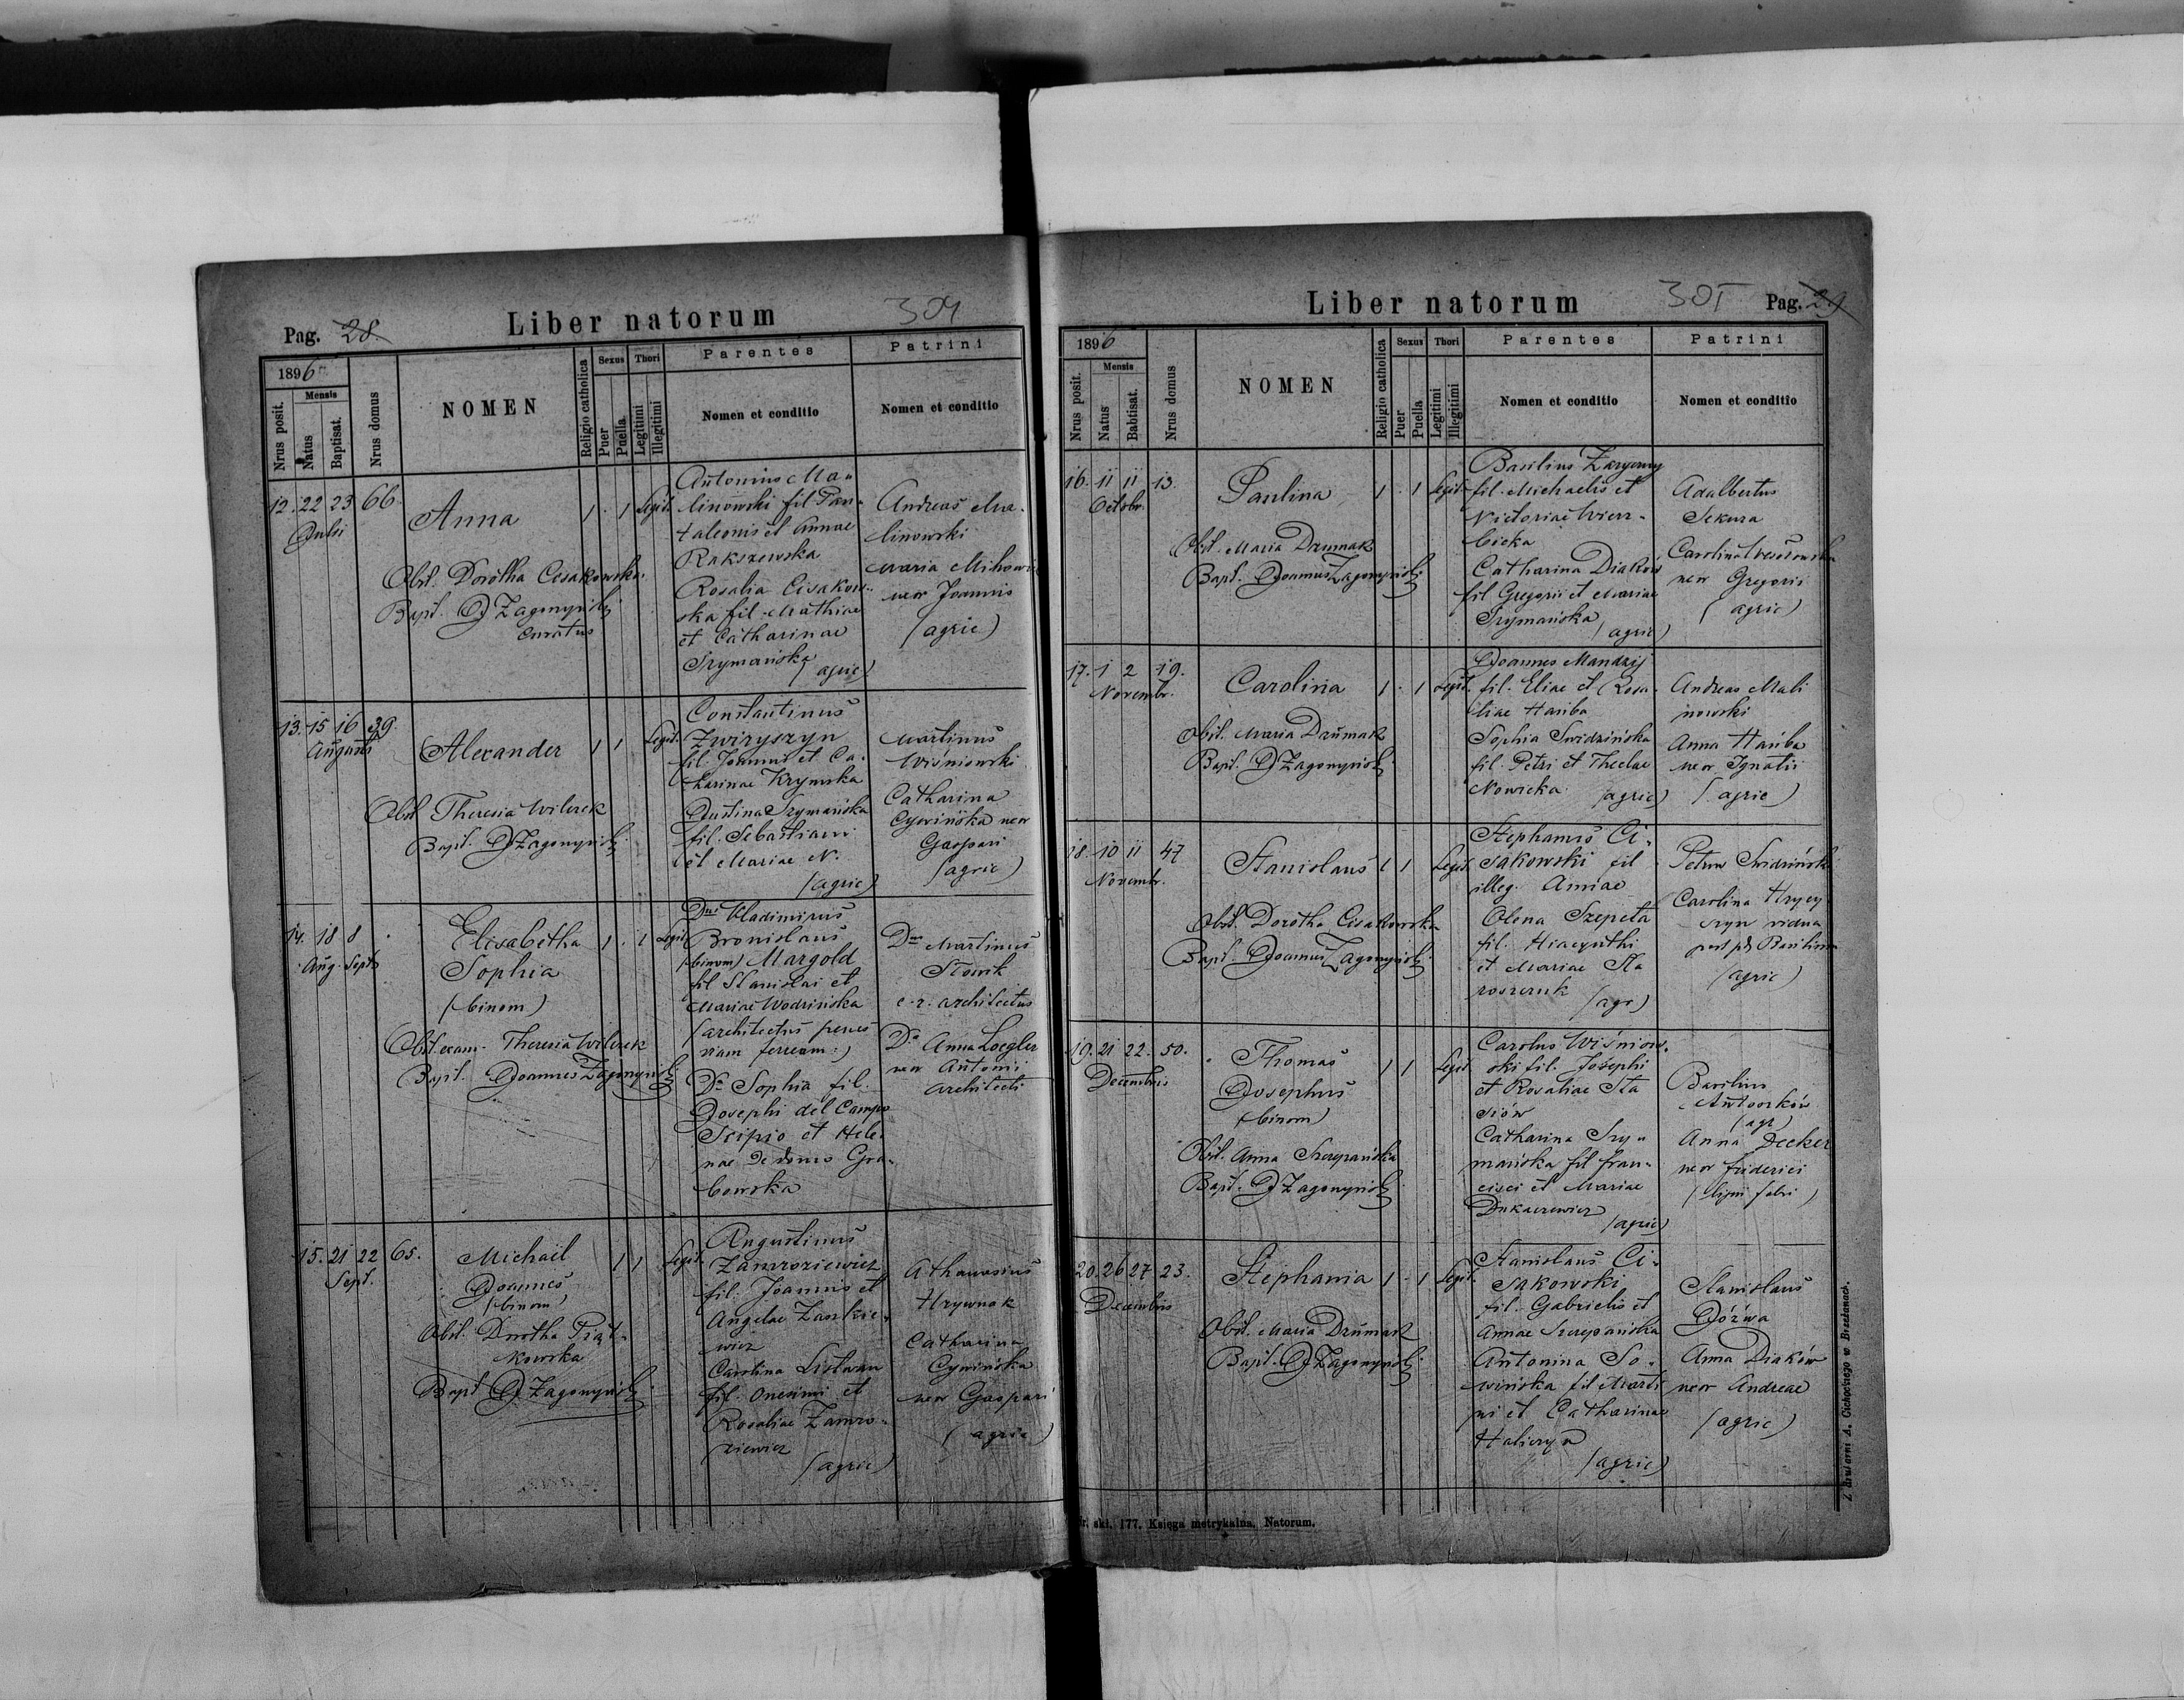 Pag. 28.
Liber natorum
304
1896
Nrus posit.
Mensis
Natus
Baptisat.
Nrus domus
NOMEN
Religio catholica
Sexus
Puer
Puella
Thori
Legitimi
Illegitimi
Parentes
Nomen et conditio
Patrini
Nomen et conditio
12. 22 23 66.
Julii
Anna
1 . 1 Legit.
Obst. Dorotha Cisakowska.
Bapt. J Zagonyński
Curatus
Antonius Ma-
linowski fil Pan-
taleonis et Annae
Rakszewska
Rosalia Cisakow-
ska fil. Mathiae
et Catharinae
Szymańska
(agric)
Andreas Ma-
linowski
Maria
uxor Joannis
(agric)
13. 15 16 39.
Augusti
Alexander
1 1 Legit.
Obst Theresia Wilczek
Bapt. J Zagonyński
Constantinus
Zwiryszyn
fil. Joannis et Ca-
tharinae Krynska
Justina Szymańska
fil. Sebastiani
et Mariae N.
(agric)
Martinus
Wiśniowski
Catharina
Cywińska uxor
Gaspari
(agric)
14. 18 8 .
Aug. Septb
Elisabetha
Sophia
(binom)
1 . 1 Legit
Obst. exam. Theresia Wilczek
Bapt. Joannes Zagonyński
Dnus Vladimirus
Bronislaus
(binom) Margold
fil Stanislai et
Mariae Wodzińska
(architectus penes
viam ferream:)
Da Sophia fil.
Josephi del Campo
Scipio et Hele-
nae de domo Gra-
bowska
Dnus Martinus
Słowik
c. r. architectus
Da Anna Loegler
uxor Antoni
architecti
15. 21 22 65.
Sept.
Michael
Joannes
(binom)
1 1 Legit.
Obst. Dorotha Piąt-
kowska
Bapt J. Zagonyński
Augustinus
Zamroziewicz
fil. Joannis et
Angelae Zaszkie-
wicz
Carolina Listwan
fil. Onesimi et
Rosaliae Zamro-
ziewicz
(agric)
Athanasius
Hrywnak
Catharina
Cywińska
uxor Gaspari
(agric)
Liber natorum
305
Pag. 29
1896
Nrus posit.
Mensis
Natus
Babtisat.
Nrus domus
NOMEN
Religio catholica
Sexus
Puer
Puella
Thori
Legitimi
Illegitimi
Parentes
Nomen et conditio
Patrini
Nomen et conditio
16. 11 11 13.
Octobr.
Paulina
1 . 1 Legit.
Obst. Maria Drumak
Bapt. Joannes Zagonyński
Basilius Zarycny
fil. Michaelis et
Victoriae Wierz-
bicka
Catharina Diaków
fil Gregorii et Mariae
Szymańska
(agric)
Adalbertus
Sekura
Carolina
uxor Gregorii
(agric)
17. 1 2 19.
Novembr.
Carolina
1 . 1 Legit.
Obst. Maria Drumak
Bapt. J Zagonyński
Joannes Mandzij
fil. Eliae et Rosa-
liae Hańba
Sophia Swidzińska
fil. Petri et Theclae
Nowicka. (agric)
Andreas Mali
nowski
Anna Hańba
uxor Ignatii
(agric)
18. 10 11 47
Novembr.
Stanislaus
1 1 Legit.
Obst. Dorotha Cisakowska
Bapt. Joannes Zagonyński
Stephanus Ci-
sakowski fil
illeg. Annae
Olena Szepeta
fil. Hiacynthi
et Mariae Sta
roszczuk
(agr)
Petrus Swidziński
Carolina Hrycy
szyn vidua
post Basilium
(agric)
19. 21 22. 50.
Decembris
Thomas
Josephus
(binom)
1 1 Legit
Obst. Anna Szczepańska
Bapt. J Zagonyński
Carolus Wiśniow-
ski fil. Josephi
et Rosaliae Sta
siów
Catharina Szy-
mańska fil Fran-
cisci et Mariae
Dukaczewicz
(agric)
Basilius
Antoszków
(agr)
Anna Decker
uxor Friderici
(ligni fabri)
20. 26 27 23.
Decembris
Stephania
1 . 1 Legit.
Obst. Maria Drumak
Bapt. J Zagonyński
Stanislaus Ci-
sakowski
fil. Gabrielis et
Annae Szczepańska
Antonina So-
wińska fil Marti
ni et Catharinae
Haliczyn
(agric)
Stanislaus
Dóźwa
Anna Diaków
uxor Andreae
(agric)
Nr. skł. 177. Księga metrykalna, Natorum.
Z drukarni A. Cichockiego w Brzeżanach.